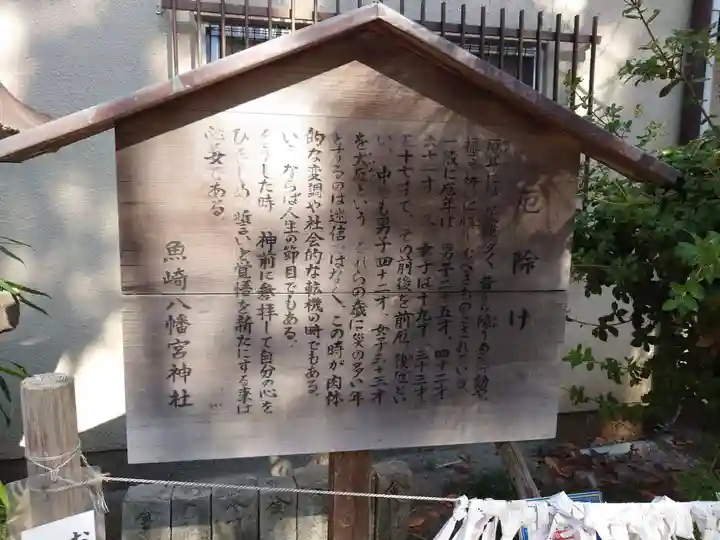 厄除け
厄年は 災難多く 昔から
一般に厄年は 男子二十五才、四十二才
六十一才 女子は十九才、三十三才
三十七才で、その前後を前厄、後厄と言い
中でも男子四十二才、女子三十三才
を大厄という これらの歳に災の多い年
とするのは迷信ではなく、この時が肉体
的な変調や社会的な転機の時でもある。
いいかえれば人生の節目でもある。
そうした時 神前に参拝して自分の心を
ひきしめ 誓いと覚悟を新たにする事は
必要である。
魚崎八幡宮神社